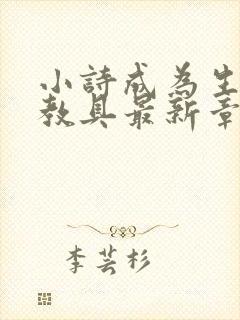 小詩成為生
教具最新章
李芸杉